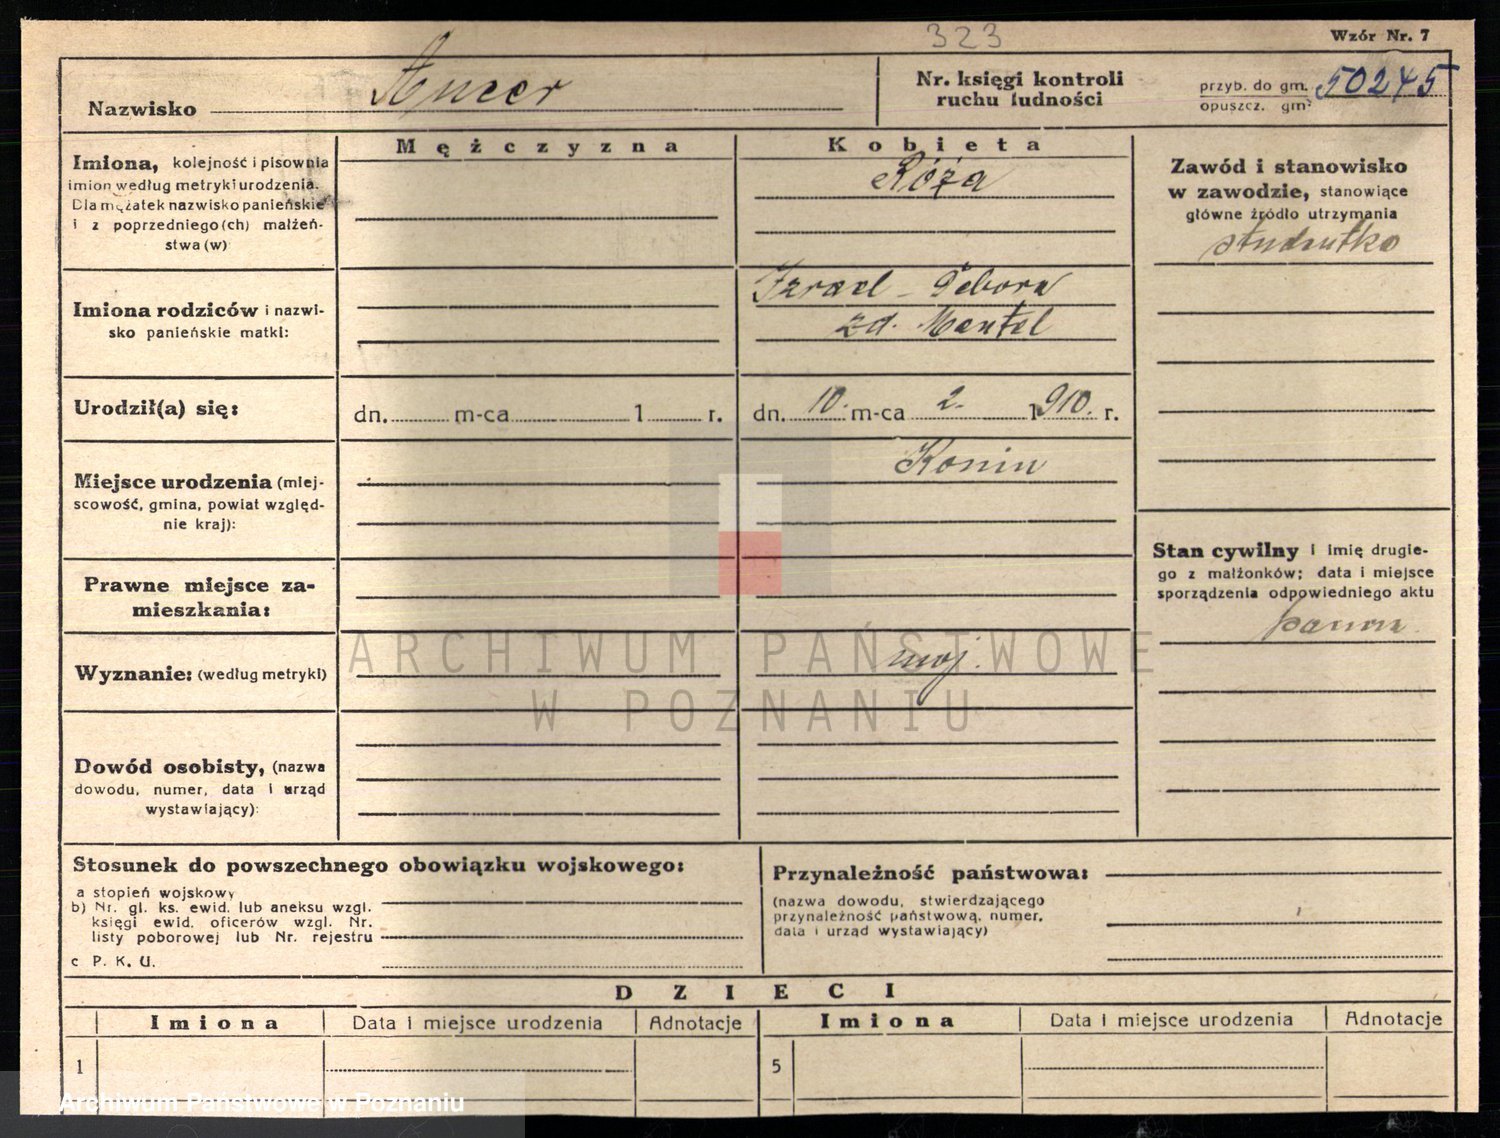 323
Wzór Nr. 7
Nazwisko Ancer
Nr. księgi kontroli
ruchu ludności
przyb. do gm. 50245
opuszcz. gm.
Mężczyzna
Kobieta
Imiona, kolejność i pisownia
imion według metryki urodzenia.
Dla mężatek nazwisko panieńskie
i z poprzedniego(ch) małżeń-
stwa(w)
Róża
Zawód i stanowisko
w zawodzie, stanowiące
główne źródło utrzymania
studentka
Imiona rodziców i nazwi-
sko panieńskie matki:
Izrael - Debora
zd. Mantel
Urodził(a) się:
dn. m-ca 1 r.
dn. 10. m-ca 2. 1910. r.
Miejsce urodzenia (miej-
scowość, gmina, powiat względ-
nie kraj):
Konin
Stan cywilny i imię drugie-
go z małżonków; data i miejsce
sporządzenia odpowiedniego aktu
panna
Prawne miejsce za-
mieszkania:
Wyznanie: (według metryki)
moj.
ARCHIWUM PAŃSTWOWE
W POZNANIU
Dowód osobisty, (nazwa
dowodu, numer, data i urząd
wystawiający):
Stosunek do powszechnego obowiązku wojskowego:
a stopień wojskowy
b) Nr. gl. ks. ewid. lub aneksu wzgl.
księgi ewid. oficerów wzgl. Nr.
listy poborowej lub Nr. rejestru
c P. K. U.
Przynależność państwowa:
(nazwa dowodu, stwierdzającego
przynależność państwową, numer,
data i urząd wystawiający)
DZIECI
Imiona Data i miejsce urodzenia Adnotacje Imiona Data i miejsce urodzenia Adnotacje
1 5
Archiwum Państwowe w Poznaniu